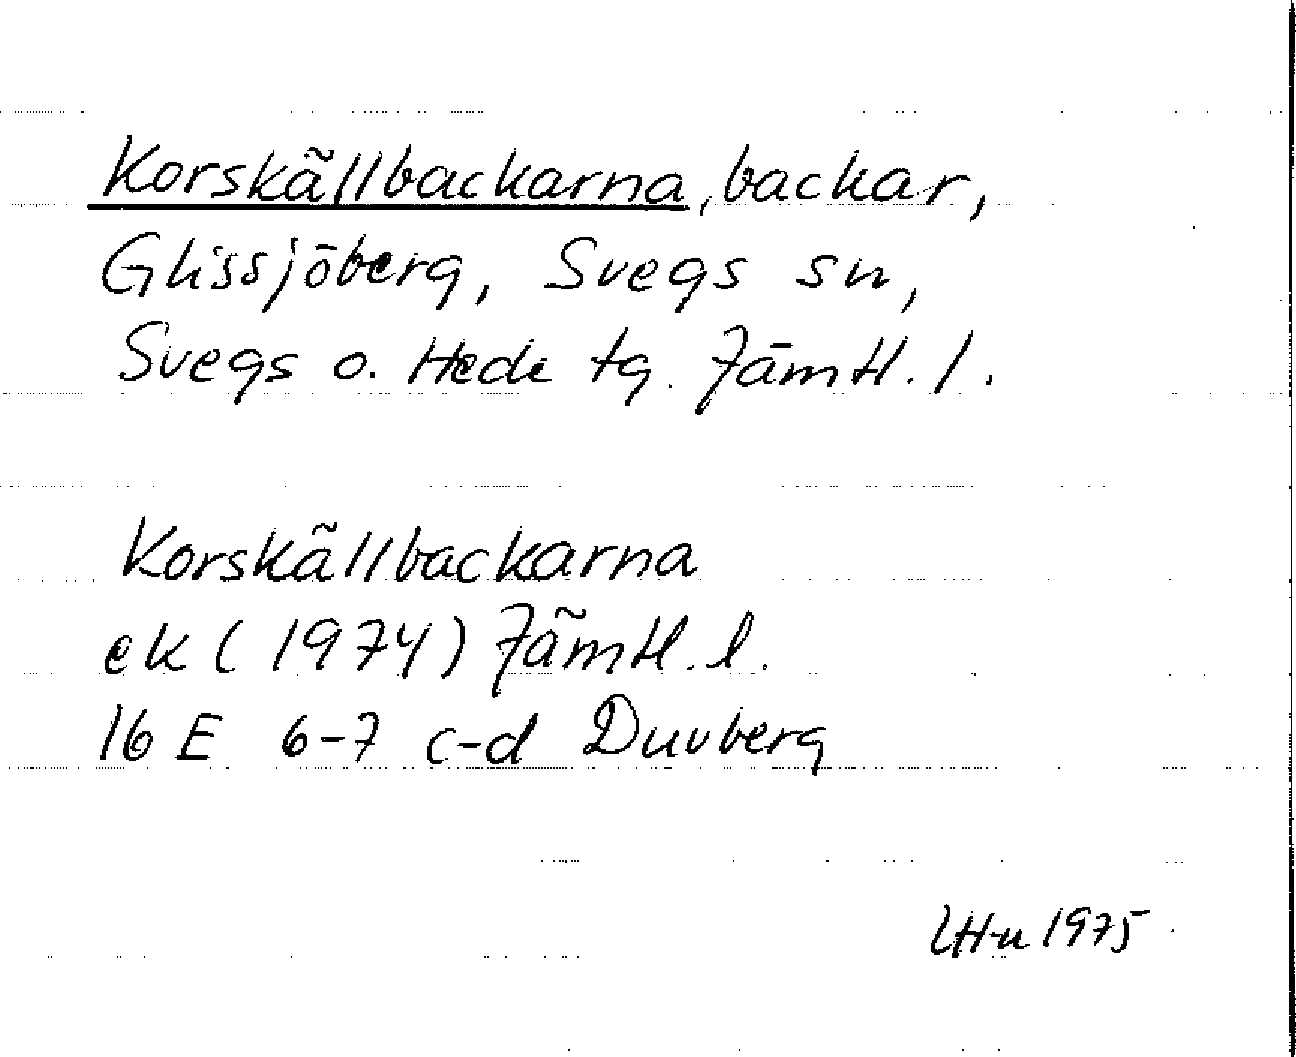 Korskällbackarna, backar,
Glissjöberg, Svegs sn,
Svegs o. Hede tg. Jämtl. l.
Korskällbackarna
ek (1974) Jämtl. l.
16 E 6-7 c-d Duvberg
LH-n 1975